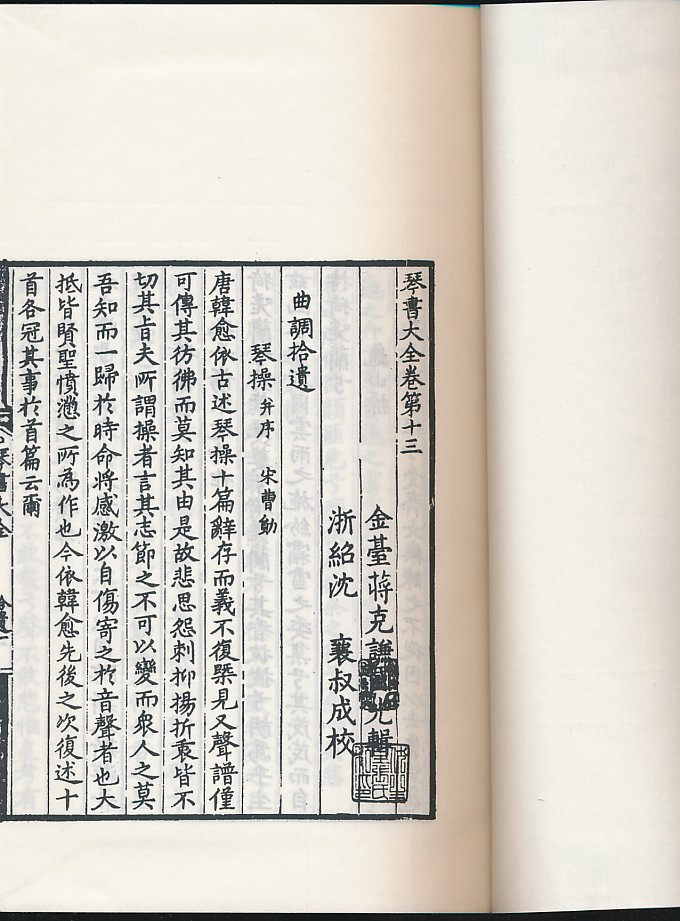 琴書大全卷第十三
金臺蔣克謙 光輯
浙紹沈 襄叔成校
曲調拾遺
琴操 并序 宋曹勛
唐韓愈依古述琴操十篇辭存而義不復槩見又聲譜僅
可傳其彷彿而莫知其由是故悲思怨刺抑揚折衷皆不
切其旨夫所謂操者言其志節之不可以變而衆人之莫
吾知而一歸於時命將感激以自傷寄之於音聲者也大
抵皆賢聖憤懣之所為作也今依韓愈先後之次復述十
首各冠其事於首篇云爾
琴書大全